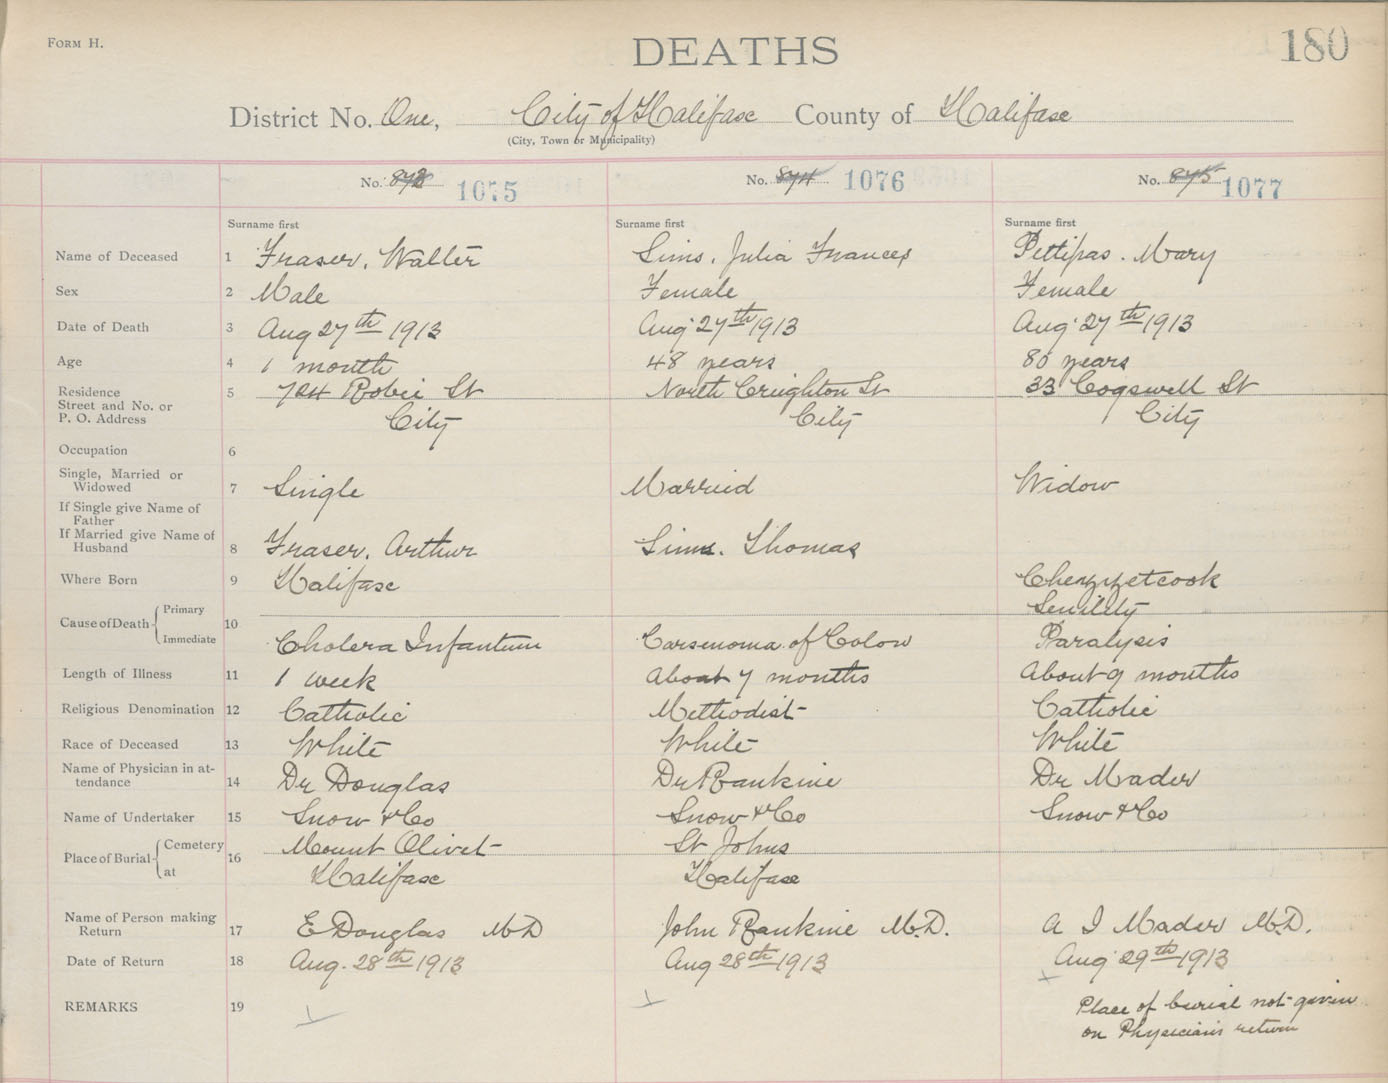 FORM H.
DEATHS
180
District No. One, City of Halifax County of Halifax
(City, Town or Municipality)
No. 873 1075 No. 874 1076 No. 875 1077
Surname first Surname first Surname first
Name of Deceased 1 Fraser, Walter Sims, Julia Frances Pettipas. Mary
Sex 2 Male Female Female
Date of Death 3 Aug 27th 1913 Aug 27th 1913 Aug 27th 1913
Age 4 1 month 48 years 80 years
Residence 5 724 Robie St North Creighton St 33 Cogswell St
Street and No. or
P. O. Address City City City
Occupation 6
Single, Married or
Widowed 7 Single Married Widow
If Single give Name of
Father
If Married give Name of
Husband 8 Fraser, Arthur Sims. Thomas
Where Born 9 Halifax Chezzetcook
Cause of Death Primary 10 Senility
Immediate Cholera Infantum Carsenoma of Colon Paralysis
Length of Illness 11 1 week About 7 months About 9 months
Religious Denomination 12 Catholic Methodist Catholic
Race of Deceased 13 White White White
Name of Physician in at-
tendance 14 Dr Douglas Dr Rankine Dr Mader
Name of Undertaker 15 Snow & Co Snow & Co Snow & Co
Place of Burial Cemetery 16 Mount Olivet St Johns
at Halifax Halifax
Name of Person making
Return 17 E Douglas M D John Rankine M.D. A I Mader M.D.
Date of Return 18 Aug. 28th 1913 Aug 28th 1913 Aug 29th 1913
REMARKS 19 Place of burial not given
on Physicians return